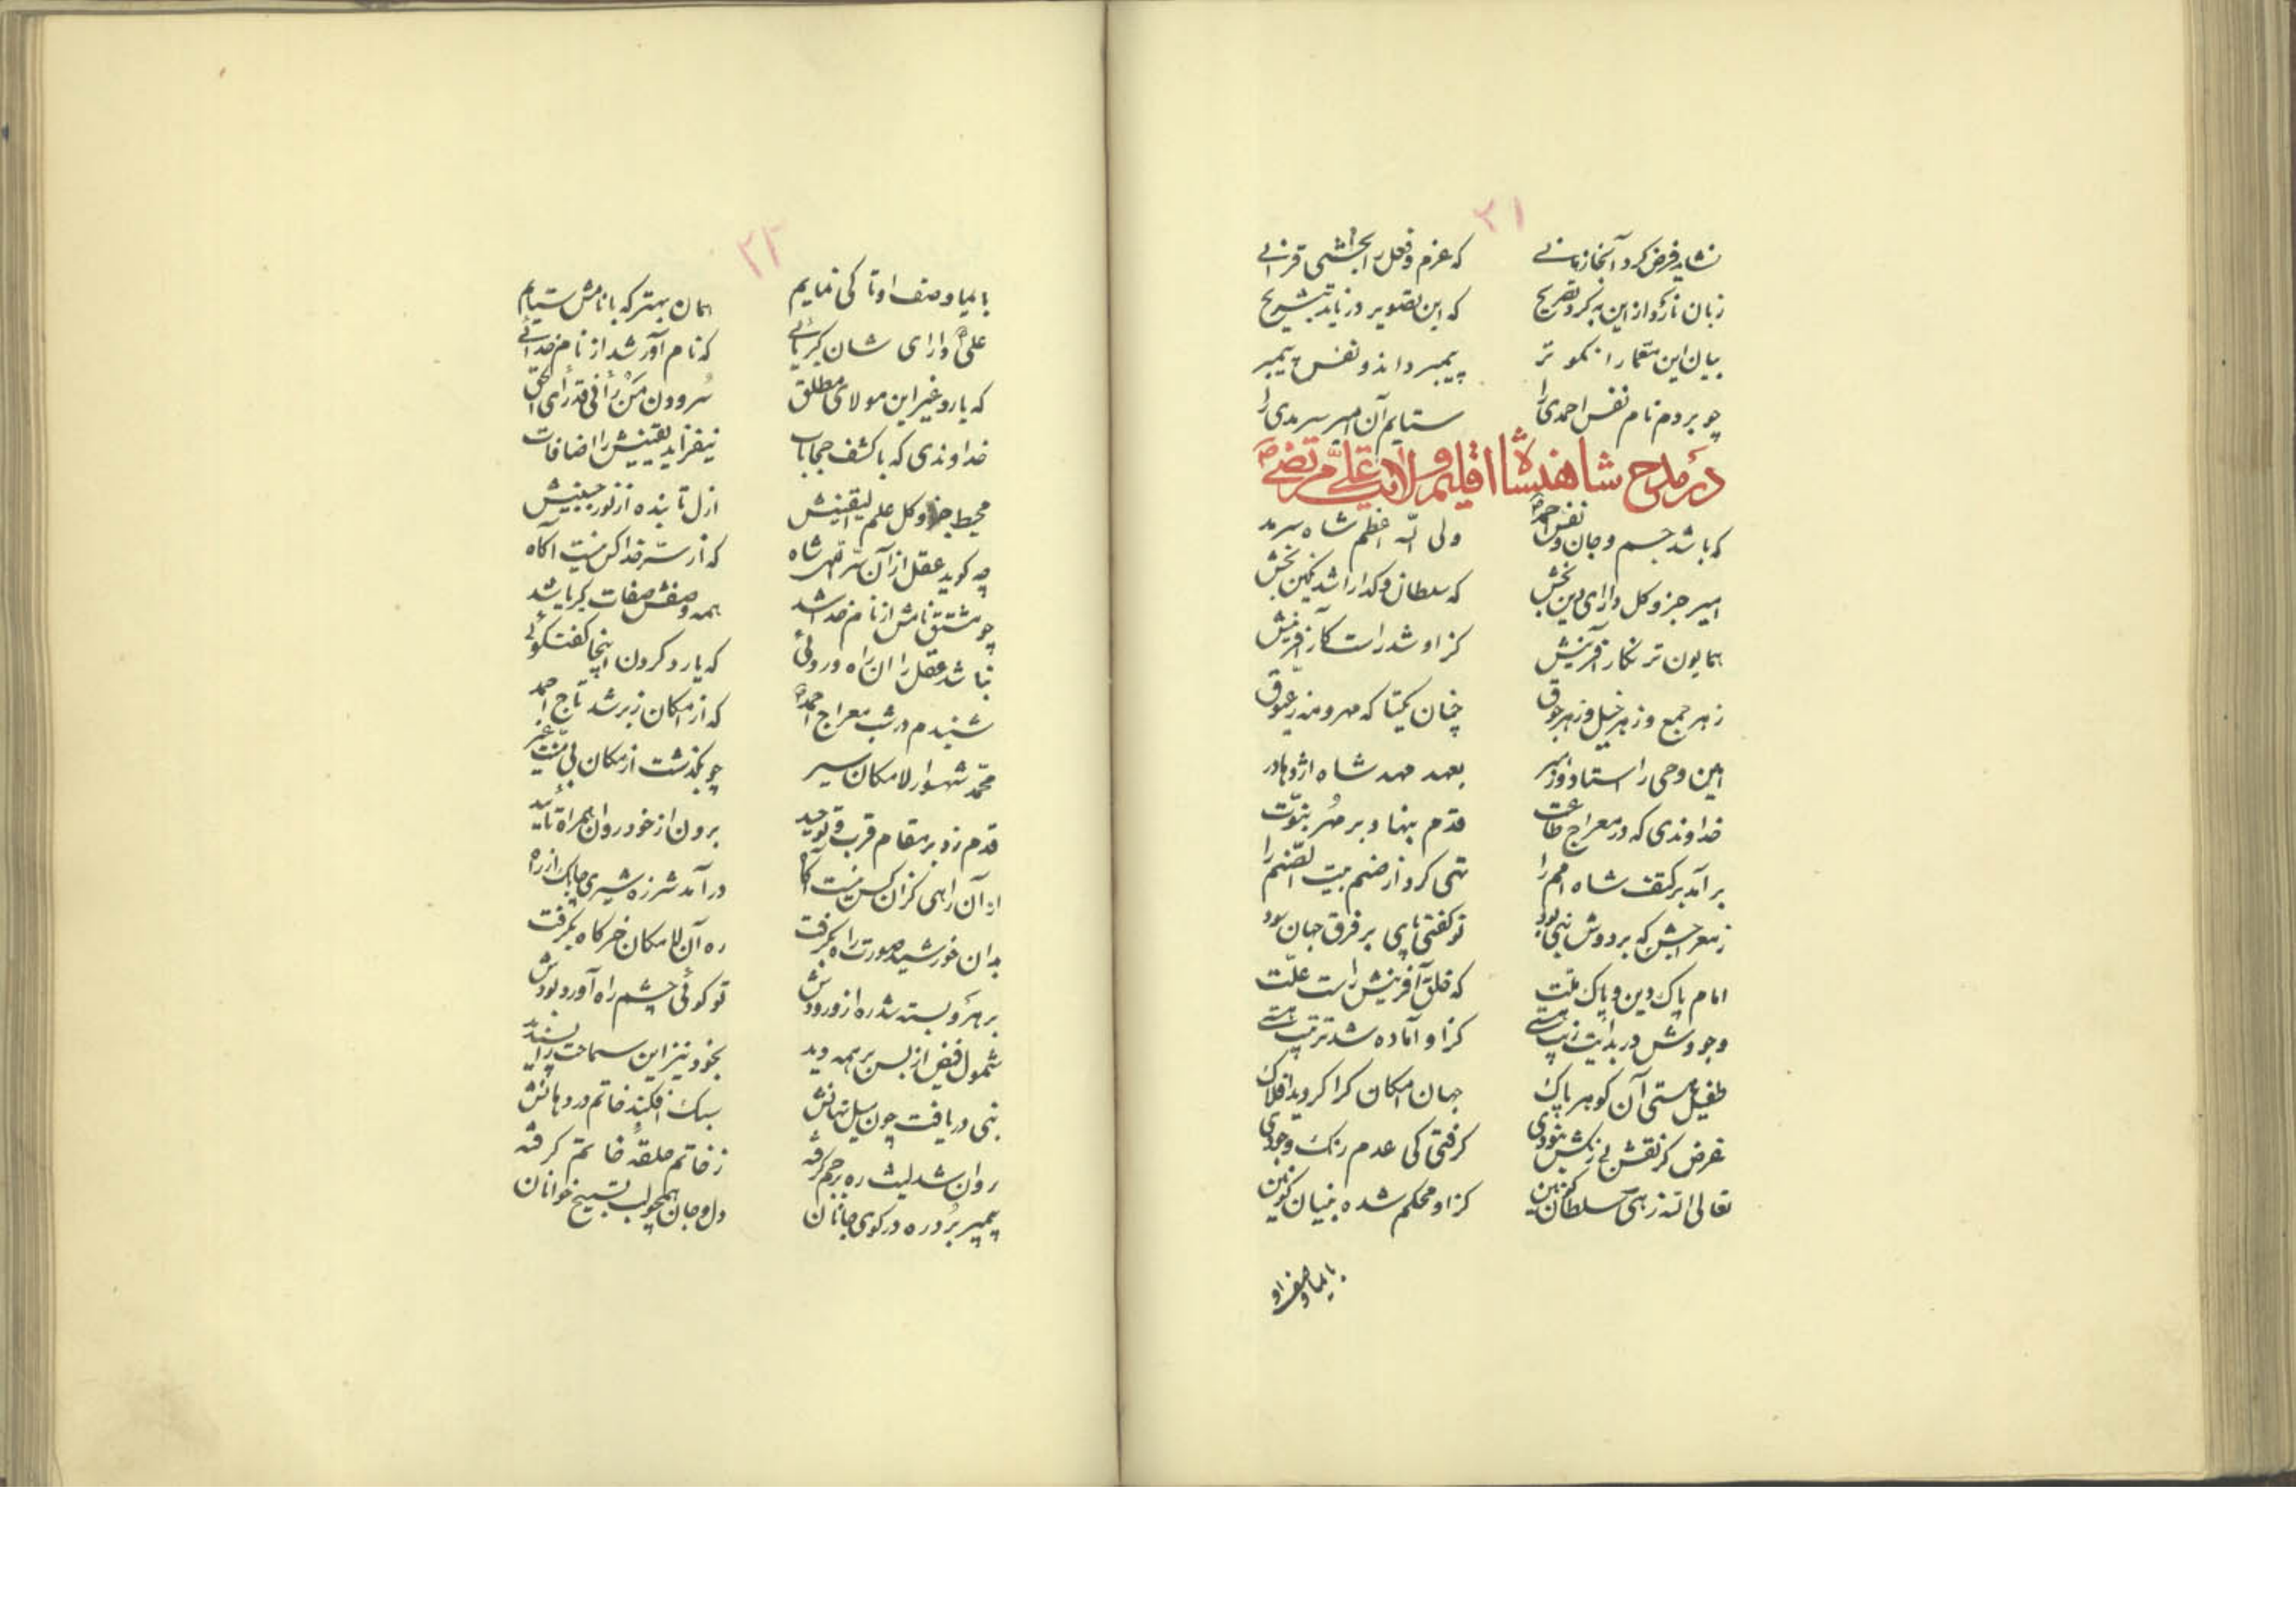 ۲۱
نشاید فرض کرد آنجا زمانی که عزم و فعل را بخشی قرانی
زبان نازک و از این به کرد تصریح که این تصویر در ناید بتشریح
بیان این معما را نکو تر پیمبر داند و نفس پیمبر
چو بردم نام نفس احمدی را ستایم آن امیر سرمدی را
در مدح شاهنشاه اقلیم ولایت علی مرتضی
که باشد جسم و جان و نفس احمد ولی الله اعظم شاه سرمد
امیر جزو کل دارای دین بخش که سلطان و کدا را شد نکین بخش
همایون تر نکار آفرینش کزاو شد راست کار آفرینش
ز هر جمع و ز هر خیل و ز هر جوق چنان یکتا که مهر و مه ز عیوق
امین وحی را استاد و رهبر بعهد مهد شاه اژدها در
خداوندی که در معراج طاعت قدم بنهاد بر مهر نبوت
بر آمد بر کتف شاه امم را تهی کرد از صنم بیت الصنم را
ز معراجش که بر دوش نبی بود تو کفتی پای بر فرق جهان سود
امام پاک دین و پاک ملت که خلق آفرینش راست علت
وجودش در بدایت زیب هستی کزاو آماده شد ترتیب هستی
طفیل هستی آن کوهر پاک جهان امکان کرا کردید افلاک
غرض کر نقش بی رنکش نبودی کرفتی کی عدم رنک وجودی
تعالی الله زهی سلطان کونین کزاو محکم شده بنیان کونین
بایما وصف او
۲۲
بایما وصف او تا کی نمایم همان بهتر که با نامش ستایم
علی دارای شان کبریائی که نام آور شد از نام خدائی
که یارد غیر این مولای مطلق سرودن من رآنی قد رای الحق
خداوندی که با کشف حجابات نیفزاید یقینش را اضافات
محیط جزو کل علم الیقینش ازل تابنده از نور جبینش
چه کوید عقل از آن سر الهی شاه که از سر خدا کس نیست آکاه
چو مشتق نامش از نام خدا شد همه وصفش صفات کبریا شد
نباشد عقل را ان راه و روئی که یارد کردن اینجا کفتکوئی
شنیدم در شب معراج احمد که از امکان زبر شد تاج احمد
محمد شهسوار لامکان سیر چو بکذشت از مکان بی منت غیر
قدم زد بر مقام قرب و توحید برون از خود روان همراه تایید
از آن راهی کزان کس نیست آکاه در آمد شرزه شیری چابک از راه
بدان خورشید صورت راه بکرفت ره آن لامکان خرکاه بکرفت
بر هرو بسته شد ره از ورودش تو کوئی چشم راه آورد بودش
شمول فیض از بس بر همه دید بخود نیز این سماحت را پسندید
نبی دریافت چون سیل نهانش سبک افکند خاتم در دهانش
روان شد لیث ره بر جم کرفته ز خاتم حلقه خاتم کرفته
پیمبر برد ره در کوی جانان دل و جان همچو لب تسبیح خوانان